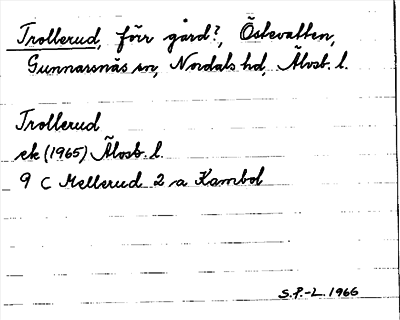 Trollerud, förr gård?, Östevatten,
Gunnarsnäs sn, Nordals hd, Älvsb. l.
Trollerud
ek (1965) Älvsb. l.
9 C Mellerud 2 a Kambol
S.P.-L. 1966